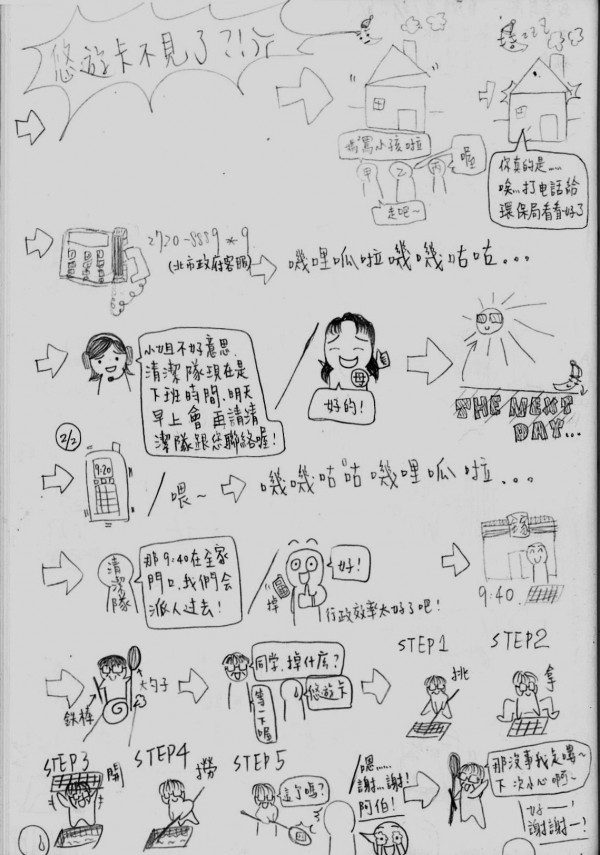 悠遊卡不見了?!
罵小孩啦
甲
乙
丙
喔
走吧~
zzz
你真的是……
唉…打電話給
環保局看看好了
2720-8889*9
(北市政府客服)
嘰哩呱啦嘰嘰咕咕...
小姐不好意思.
清潔隊現在是
下班時間、明天
早上會再請清
潔隊跟您聯絡喔!
母
好的!
THE NEXT
DAY...
2/2
9:20
喂~
嘰嘰咕咕嘰哩呱啦...
清潔隊
那9:40在全家
門口,我們會
派人過去!
掉
好!
行政效率太好了吧!
9:40
鉄棒
大勺子
同学,掉什広?
悠遊卡
等一下喔
STEP1
挑
STEP2
拿
STEP3
開
STEP4
撈
STEP5
這个嗎?
嗯....
謝...謝!
阿伯!
那沒事我走嘍~
下次小心啊~
好——!
謝謝—!